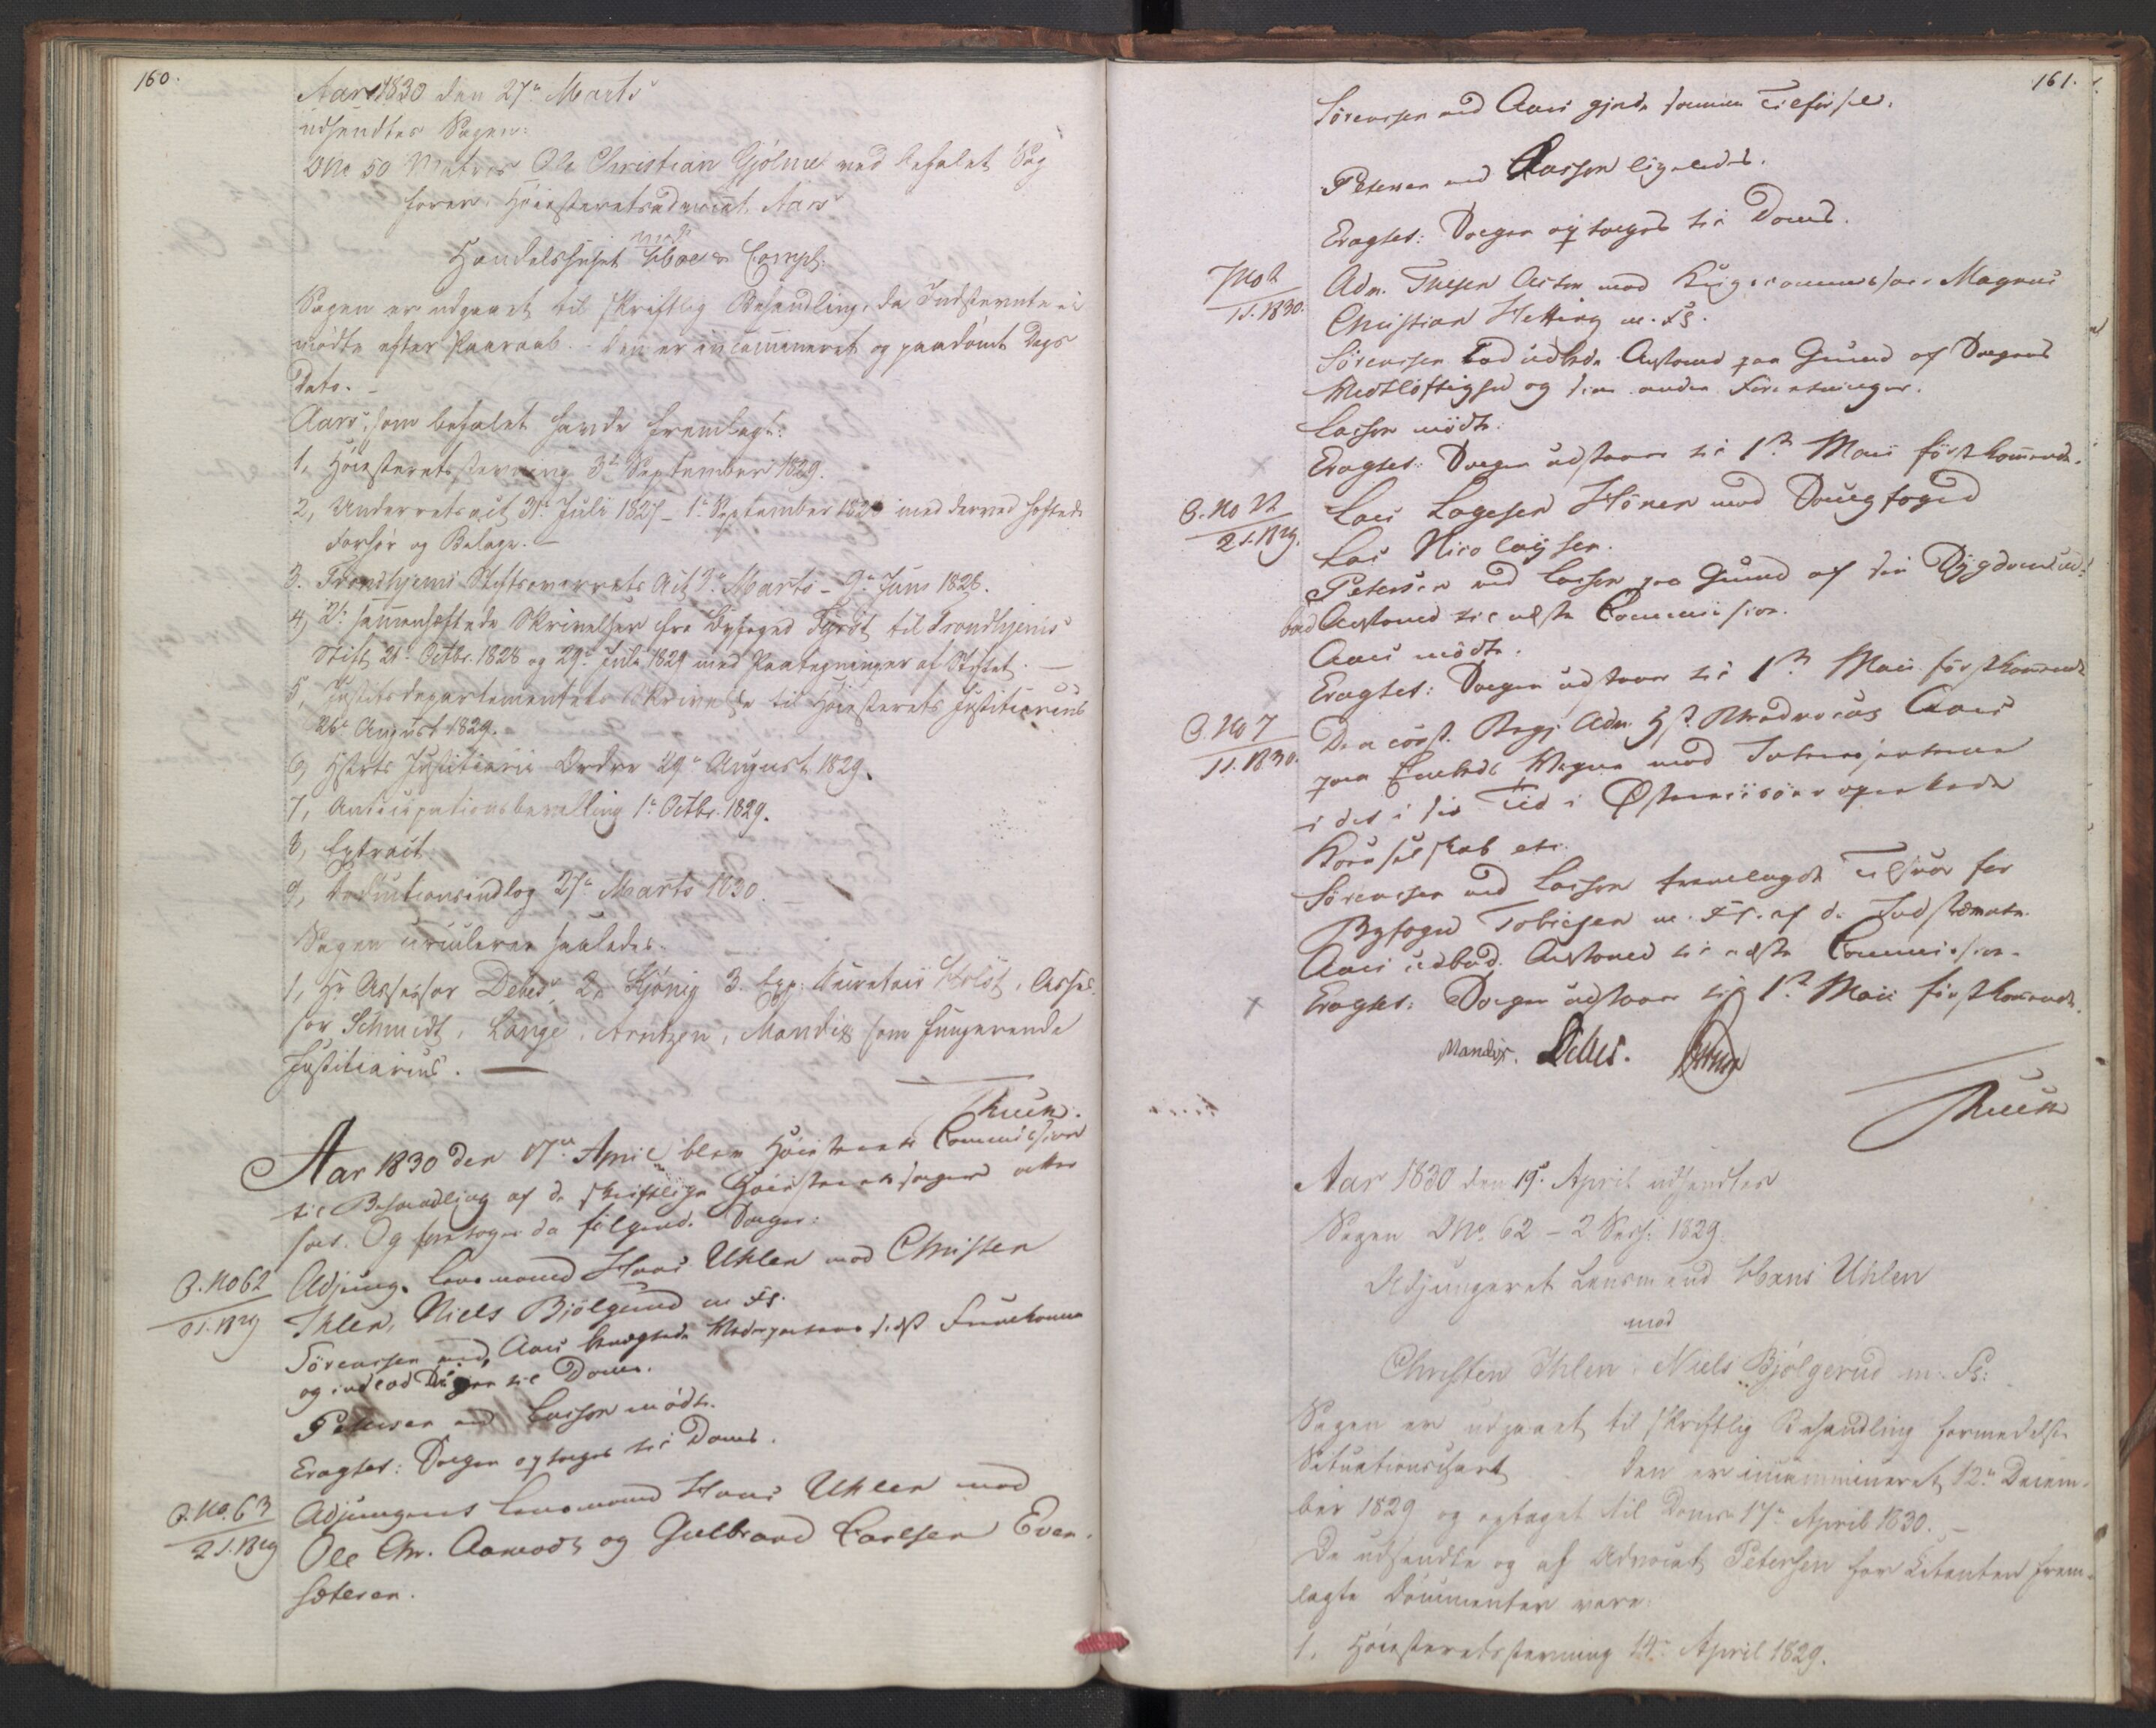 160.
Aar 1830 den 27de Marts
udsendtes Sagen:
No 50 Matros Ole Christian Gjølme ved befalet Sag
fører Høiesteretsadvocat Aars
mod
Handelshuset Hoe & Compt:
Sagen er udgaaet til skriftlig Behandling, da Indstevnte ei
mødte efter Paaraab. Den er incamineret og paadömt Dags
Dato.
Aars, som befalet havde fremlagt:
1, Høiesteretsstevning 3de September 1829.
2, Underretsact 31te Juli 1827 - 1ste September 1828 med derved heftede
Forhør og Bilage.
3. Trondhjems Stiftsoverrets Act 3de Marts - 9de Juni 1828.
4, 2de sammenheftede Skrivelser fra Byfoged til Trondhjems
Stift 21de Octbr. 1828 og 29de Juli 1829 med Paategninger af Stiftet.
5, Justitsdepartementets Skrivelse til Høiesterets Justitiarius
26de August 1829.
6, Hsterts Justitiarii Ordre 29de August 1829.
7, Anticipationsbevilling 1ste Octbr. 1829.
8, Extract
9, Deductionsindlæg 27de Marts 1830.
Sagen circulerer saaledes:
1, Hr Assessor Debes, 2, Kjönig 3. Exp: Secretair Holst, Asses
sor Schmidt, Lange, Arntzen, Mandix som fungerende
Justitiarius.
Thuen.
Aar 1830 den 17de April blev Høiesterets Commission
til Behandling af de skriftlige Høiesteretssager atter
sat. Og foretoges da følgende Sager:
P. No 62
2 S. 1829
Adjung. Lensmand Hans Uhlen mod Christen
Ihlen, Niels Bjölgerud m. Fl.
Sörensen ved Aars Modpartens sidst Fremkomne
og indlod Sagen til Doms.
Petersen ved Lasson mödte.
Eragtet: Sagen optages til Doms.
P. No. 63
2 S. 1829
Adjungeret Lensmand Hans Uhlen mod
Ole Chr. Aamodt og Gulbrand Carlsen Even
sæteren.
161.
Sörensen ved Aars gjorde samme Tilförsel.
Petersen ved Lasson ligeledes.
Eragtet: Sagen optages til Doms.
P No 2
1 S. 1830.
Adv. Thesen Actor mod Krigscommissair Magnus
Christian Hetting m. Fl.
Sörensen bad udsat Anstand paa Grund af Sagens
Vidtløftighed og sine andre Forretninger.
Lasson mödte.
Eragtet: Sagen udstaaer til 1ste Maii førstkommende.
P. No 22
2 S. 1829.
Lars Hönen mod Sougfoged
Lars Nicolaysen.
Petersen ved Lasson paa Grund af sin Sygdom ud
bad Anstand til næste Commission.
Aars mödte.
Eragtet: Sagen udstaaer til 1ste Maii førstkommende
P. No 7
1 S. 1830.
Den const. Reg. Adv. Aars
paa Embeds Vegne mod Interessenterne
i det i sin Tid i Østerriisöer oprettede
Kornselskab etc.
Sörensen ved Lasson fremlagde Tilsvar for
Byfoged Tobiesen m. Fl. af de Indstævnte.
Aars udbad Anstand til næste Commission.
Eragtet: Sagen udstaaer til 1ste Maii førstkommende.
Mandix. Debes.
Thuen
Aar 1830 den 19de April udsendtes
Sagen No. 62 - 2 Sess: 1829
Adjungeret Lensmand Hans Uhlen
mod
Christen Ihlen, Niels Bjølgerud m. Fl:
Sagen er udgaaet til skriftlig Behandling formedelst
Situationschart. Den er incamineret 12te Decem
ber 1829 og optaget til Doms 17de April 1830.
De udsendte og af Advocat Petersen for Citanten frem
lagte Documenter vare:
1. Høiesteretsstevning 14de April 1829.